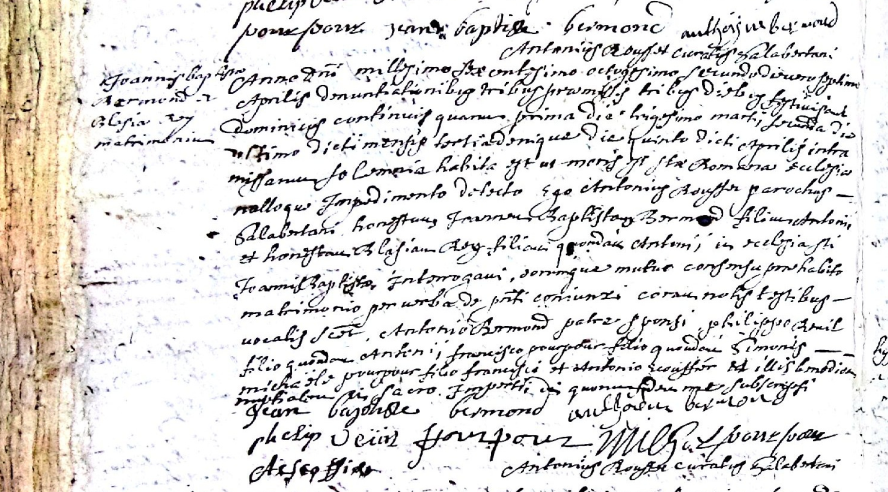 pourpour Jean baptiste bermond anthoine bermond
Antonius Rousset curatus Salabertani
Joannis baptistae
Bermond et
Blasia Rey
matrimonium
Anno dni millesimo sexcentesimo octuagesimo secundo die vero septima
Aprilis denuntiationibus tribus praemissis tribus diebus festivis aut
dominicis continuis quarum prima die trigesimo martii secunda die
ultimo dicti mensis tertia denique die quinto dicti Aprilis intra
missarum solemnia habita est ut moris est stae Romanae Ecclesiae
nulloque Impedimento detecto Ego Antonius Rousset parochus
Salabertani honestum Joannem Baptistam Bermond filium Antonii
et honestam Blasiam Rey filiam quondam Antonii in ecclesia sti
Joannis Baptistae Interrogavi, eorumque mutuo consensu prae habito
matrimonio per verba de pnti coniunxi coram notis testibus
vocatis Antonio Bermond patre sponsi, philippo
filio quondam Antonii francisco pourpour filio quondam Simonis
michaele pourpour filio francisci et Antonio Rousset et illis benedictionem
nuptialem in sacro Imperti in quorum fidem me subscripsi
Jean baptiste bermond anthoine bermond
phelip pourpour Michel pourpour
Antonius Rousset curatus Salabertani